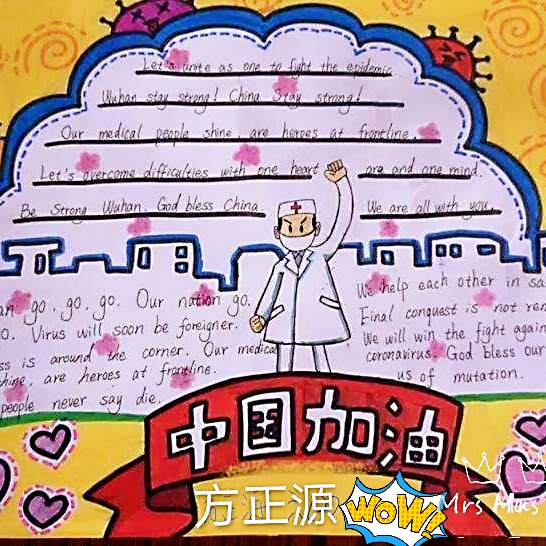 Let's unite as one to fight the epidemic
Wuhan stay strong! China Stay strong!
Our medical people shine, are heroes at frontline.
Let's overcome difficulties with one heart are and one mind.
Be Strong Wuhan. God bless China
We are all with you.
an go, go, go. Our nation go,
o. Virus will soon be foreigner.
ss is around the corner. Our medical
shine, are heroes at frontline.
people never say die.
We help each other in sa
Final conquest is not ren
We will win the fight again
coronavirus. God bless our
us of mutation.
中国加油
方正源
WOW!
Mrs